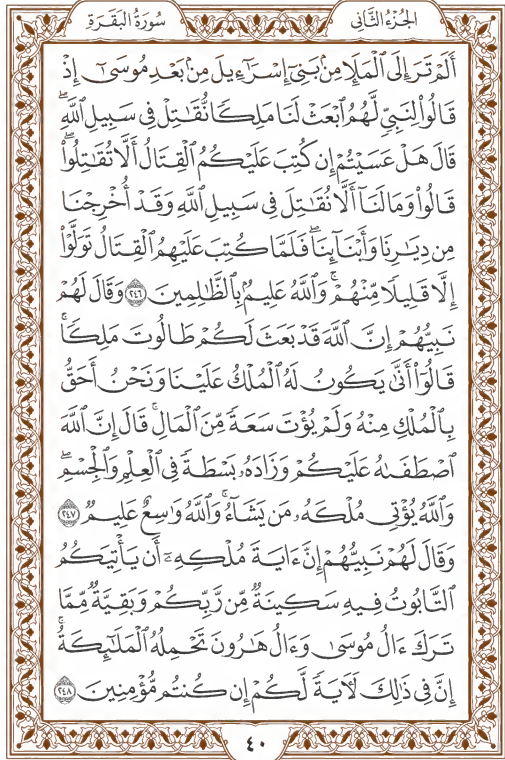 سُورَةُ البَقَرَةِ
الجُزْءُ الثَّانِي
أَلَمْ تَرَ إِلَى ٱلْمَلَإِ مِنۢ بَنِىٓ إِسْرَٰٓءِيلَ مِنۢ بَعْدِ مُوسَىٰٓ إِذْ
قَالُوا۟ لِنَبِىٍّ لَّهُمُ ٱبْعَثْ لَنَا مَلِكًا نُّقَٰتِلْ فِى سَبِيلِ ٱللَّهِ ۖ
قَالَ هَلْ عَسَيْتُمْ إِن كُتِبَ عَلَيْكُمُ ٱلْقِتَالُ أَلَّا تُقَٰتِلُوا۟ ۖ
قَالُوا۟ وَمَا لَنَآ أَلَّا نُقَٰتِلَ فِى سَبِيلِ ٱللَّهِ وَقَدْ أُخْرِجْنَا
مِن دِيَٰرِنَا وَأَبْنَآئِنَا ۖ فَلَمَّا كُتِبَ عَلَيْهِمُ ٱلْقِتَالُ تَوَلَّوْا۟
إِلَّا قَلِيلًا مِّنْهُمْ ۗ وَٱللَّهُ عَلِيمٌۢ بِٱلظَّٰلِمِينَ ٢٤٦ وَقَالَ لَهُمْ
نَبِيُّهُمْ إِنَّ ٱللَّهَ قَدْ بَعَثَ لَكُمْ طَالُوتَ مَلِكًا ۚ
قَالُوٓا۟ أَنَّىٰ يَكُونُ لَهُ ٱلْمُلْكُ عَلَيْنَا وَنَحْنُ أَحَقُّ
بِٱلْمُلْكِ مِنْهُ وَلَمْ يُؤْتَ سَعَةً مِّنَ ٱلْمَالِ ۚ قَالَ إِنَّ ٱللَّهَ
ٱصْطَفَىٰهُ عَلَيْكُمْ وَزَادَهُۥ بَسْطَةً فِى ٱلْعِلْمِ وَٱلْجِسْمِ ۖ
وَٱللَّهُ يُؤْتِى مُلْكَهُۥ مَن يَشَآءُ ۚ وَٱللَّهُ وَٰسِعٌ عَلِيمٌ ٢٤٧
وَقَالَ لَهُمْ نَبِيُّهُمْ إِنَّ ءَايَةَ مُلْكِهِۦٓ أَن يَأْتِيَكُمُ
ٱلتَّابُوتُ فِيهِ سَكِينَةٌ مِّن رَّبِّكُمْ وَبَقِيَّةٌ مِّمَّا
تَرَكَ ءَالُ مُوسَىٰ وَءَالُ هَٰرُونَ تَحْمِلُهُ ٱلْمَلَٰٓئِكَةُ ۚ
إِنَّ فِى ذَٰلِكَ لَءَايَةً لَّكُمْ إِن كُنتُم مُّؤْمِنِينَ ٢٤٨
٤٠